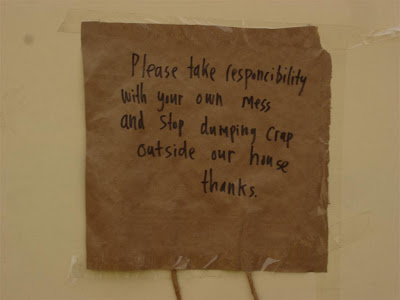 Please take responcibility
with your own mess
and stop dumping crap
outside our house
thanks.